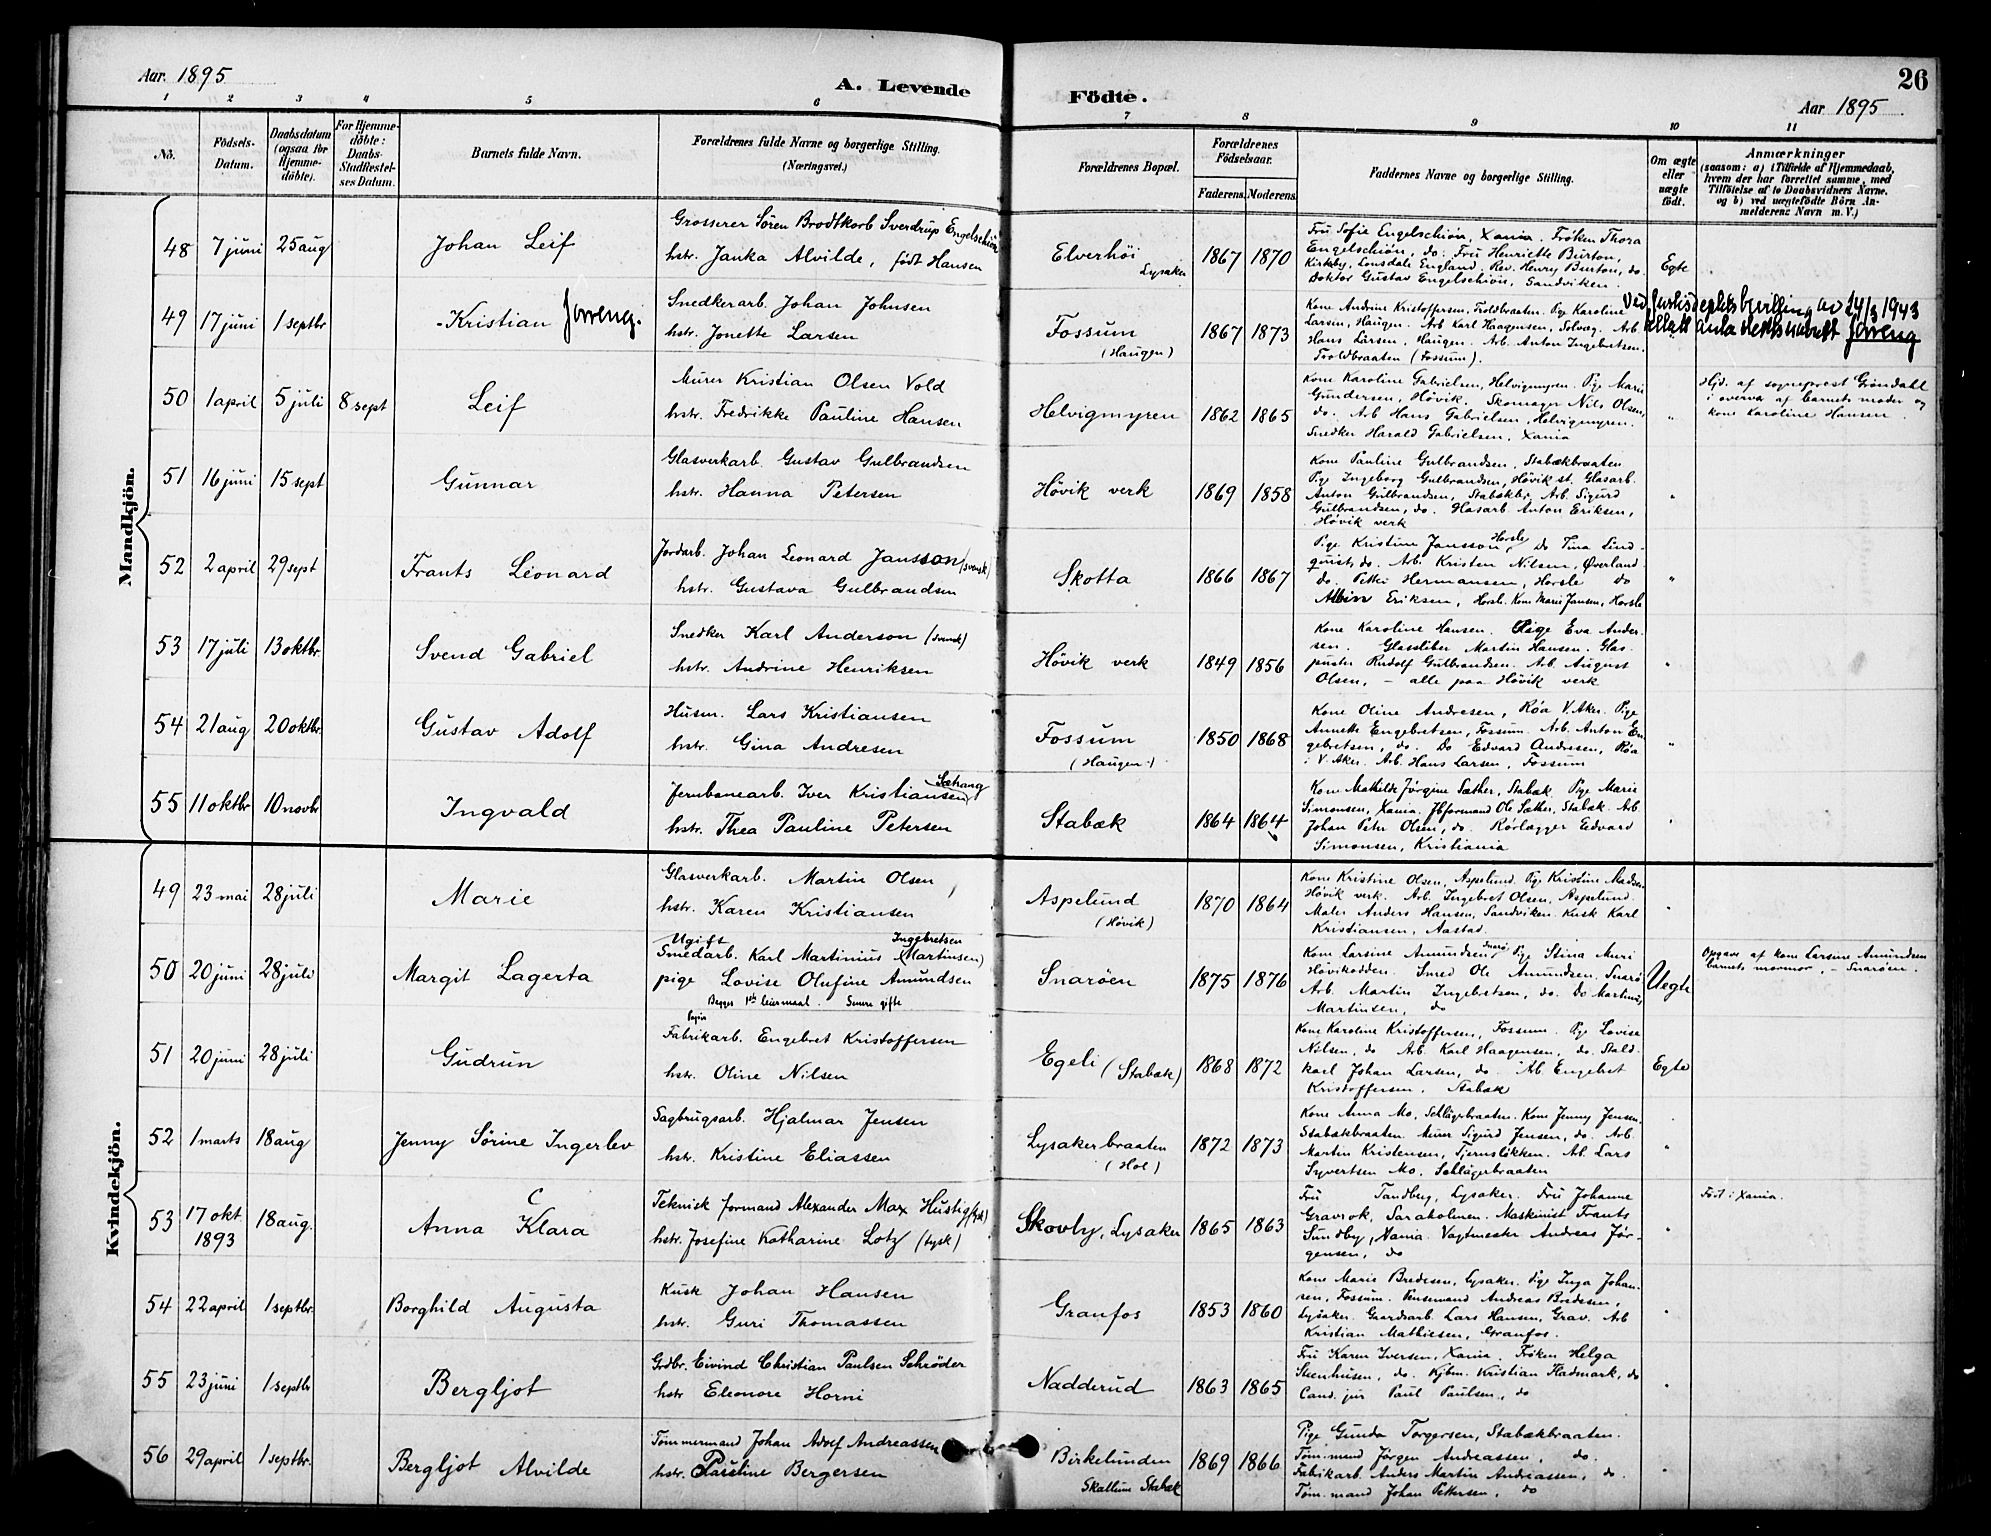 Aar. 1895
A. Levende
Födte.
26
Aar 1895
1 2 3 4 5 6 7 8 9 10 11
No. Födsels-Datum. Daabsdatum (ogsaa for Hjemmedöbte). For Hjemmedöbte: Daabs-Stadfæstelses Datum. Barnets fulde Navn. Forældrenes fulde Navne og borgerlige Stilling. (Næringsvei.) Forældrenes Bopæl. Forældrenes Födselsaar. Faderens. Moderens. Faddernes Navne og borgerlige Stilling. Om ægte eller uægte födt.
Anmærkninger
(saasom: a) i Tilfælde af Hjemmedaab, hvem der har forrettet samme, med Tilföielse af to Daabsvidners Navne, og b) ved uægtefödte Börn Anmelderens Navn m. V.)
Mandkjön.
48 7 juni 25 aug Johan Leif
Grosserer Sören Brodtkorb Sverdrup Engelschiön
hstr. Janka Alvilde, født Hansen
Elverhöi
Lysaker
1867 1870
Fru Sofie Engelschiön, Xania. Frøken Thora
Engelschiön, do. Fru Henriette Burton,
Kirkby, Lonsdale England. Rev. Henry Burton, do.
Doktor Gustav Engelschiön, Sandviken.
Egte
49 17 juni 1 septbr Kristian Jorreng.
Snedkerarb. Johan Johnsen
hstr. Jonette Larsen
Fossum
(Haugen)
1867 1873
Kone Andrine Kristoffersen, Troldbraaten. Pige Karoline
Larsen, Haugen. Arb Karl Haagensen, Solvag. Arb
Hans Larsen, Haugen. Arb. Anton Ingebretsen,
Troldbraaten (Fossum).
av 24/3 1943
Jorreng
50 1 april 5 juli 8 sept Leif
Murer Kristian Olsen Vold
hstr. Fredrikke Pauline Hansen
Helvigmyren
1862 1865
Kone Karoline Gabrielsen, Helvigmyren. Pige Marie
Gundersen, Hövik. Skomager Nils Olsen,
do. Arb Hans Gabrielsen, Helvigmyren.
Snedker Harald Gabrielsen, Xania
"
Hjd. af sogneprest Grøndahl
i overvær af barnets moder og
kone Karoline Hansen
51 16 juni 15 sept Gunnar
Glasverkarb. Gustav Gulbrandsen
hstr. Hanna Petersen
Hövik verk
1869 1858
Kone Pauline Gulbrandsen, Stabækbraaten
Pige Ingeborg Gulbrandsen, Hövik st. Glasarb.
Anton Gulbrandsen, Stabækbr. Arb. Sigurd
Gulbrandsen, do. Glasarb Anton Eriksen,
Hövik verk
"
52 2 april 29 sept Frants Leonard
Jordarb. Johan Leonard Jansson (svensk)
hstr. Gustava Gulbrandsen
Skotta
1866 1867
Pige Kristine Jansson, Horsle Do Tina Lind-
quist, do. Arb. Kristen Nilsen, Øverland
do. Petter Hermansen, Horsle do
Albin Eriksen, Horsle. Kone Marie Jansen, Horsle
"
53 17 juli 13 oktbr. Svend Gabriel
Snedker Karl Anderson (svensk)
hstr. Andrine Henriksen
Hövik verk
1849 1856
Kone Karoline Hansen. Pige Eva Ander-
sen. Glassliber Martin Hansen. Glas-
puster Rudolf Gulbrandsen. Arb. August
Olsen, – alle paa Hövik verk
"
54 21 aug 20 oktbr. Gustav Adolf
Husm. Lars Kristiansen
hstr. Gina Andresen
Fossum
(Haugen)
1850 1868
Kone Oline Andresen, Røa V. Aker. Pige
Annette Engebretsen, Fossum. Arb. Anton En-
gebretsen, do. Do Edvard Andresen, Røa
i V. Aker. Arb. Hans Larsen, Fossum
"
55 11 oktbr 10 novbr Ingvald
Jernbanearb. Iver Kristiansen Sæhaug
hstr. Thea Pauline Petersen
Stabæk
1864 1864
Kone Mathilde Jørgine Sæther, Stabæk. Pige Marie
Simonsen, Xania. Jbformand Ole Sæther, Stabæk. Arb.
Johan Peter Olsen, do. Rørlægger Edvard
Simonsen, Kristiania
"
Kvindekjön.
49 23 mai 28 juli Marie
Glasverkarb. Martin Olsen
hstr. Karen Kristiansen
Aspelund
(Hövik)
1870 1864
Kone Kristine Olsen, Aspelund. Pige Kristine Madsen
Hövik verk. Arb. Ingebret Olsen, Aspelund.
Maler Anders Hansen, Sandviken. Kusk Karl
Kristiansen, Aastad.
"
50 20 juni 28 juli Margit Lagerta
Ugift Ingebretsen
Smedarb. Karl Martinius (Martinsen)
pige Lovise Olufine Amundsen
Begges 1ste leiermaal. Senere gifte
Snarøen
1875 1876
Kone Larsine Amundsen, Snarø. Pige Stina Muri
Hövikodden. Smed Ole Amundsen, Snarø
Arb. Martin Ingebretsen, do. Do Martinius
Martinsen, do
Uegte
Opgave af kone Larsine Amundsen
barnets mormor, – Snarøen.
51 20 juni 28 juli Gudrun
Papir
Fabrikarb. Engebret Kristoffersen
hstr. Oline Nilsen
Egeli (Stabæk)
1868 1872
Kone Karoline Kristoffersen, Fossum. Pige Lovise
Nilsen, do Arb. Karl Haagensen, do. Stald-
karl Johan Larsen, do. Arb. Engebret
Kristoffersen, Stabæk
Egte
52 1 marts 18 aug Jenny Sörine Ingerlev
Sagbrugsarb. Hjalmar Jensen
hstr. Kristine Eliassen
Lysakerbraaten
(Hol)
1872 1873
Kone Anna Mo, Schlägerbraaten. Kone Jenny Jensen,
Stabækbraaten. Murer Sigurd Jensen, do. Arb.
Martin Kristensen, Tjernsløkken. Arb. Lars
Syvertsen Mo, Schlägerbraaten
"
53 17 okt 1893 18 aug. Anna Klara
C
Teknisk formand Alexander Max Hustig (tysk)
hstr. Josefine Katharine Lotz (tysk)
Skovly, Lysaker
1865 1863
Fru Tandberg, Lysaker. Fru Johanne
Gravrok, Saraholmen. Maskinist Frants
Sundby, Xania. Vagtmester Andreas Jør-
gensen, do
"
Født i Xania.
54 22 april 1 septbr. Borghild Augusta
Kusk Johan Hansen
hstr. Guri Thomassen
Granfos
1853 1860
Kone Marie Bredesen, Lysaker. Pige Inga Johan-
sen, Fossum. Andreas Bredesen,
Lysaker. Gaardsarb. Lars Hansen, Grav. Arb
Kristian Mathiesen, Granfos.
"
55 23 juni 1 septbr Bergljot
Grdbr. Eivind Christian Paulsen Schrøder
hstr Eleonore Horni
Nadderud
1863 1865
Fru Karen Iversen, Xania. Frøken Helga
Steenhusen, do. Kjbm. Kristian Hadmark, do
Cand. jur Paul Paulsen, do
"
56 29 april 1 septbr. Bergljot Alvilde
Tømmermand Johan Adolf Andreassen
hstr. Pauline Bergersen
Birkelunden
Skallum Stabæk
1869 1866
Pige Gunda Torgersen, Stabækbraaten.
Tømmermand Jørgen Andreassen, do.
Fabrikarb. Anders Martin Andreassen, do.
Tøm.mand Johan Pettersen, do
"